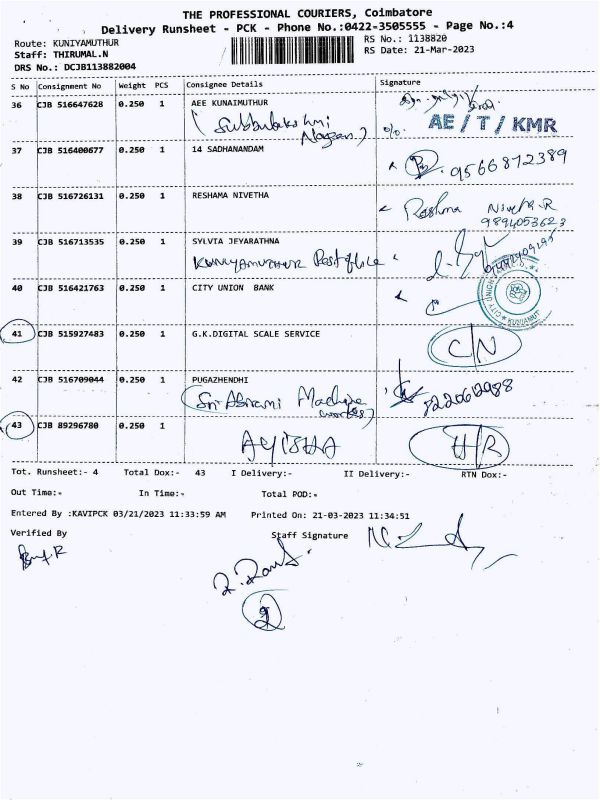 THE PROFESSIONAL COURIERS, Coimbatore
Delivery Runsheet - PCK - Phone No.:0422-3505555 - Page No.:4
Route: KUNIYAMUTHUR
RS No.: 1138820
Staff: THIRUMAL.N
RS Date: 21-Mar-2023
DRS No.: DCJB113882004
S No Consignment No Weight PCS Consignee Details Signature
36 CJB 516647628 0.250 1 AEE KUNAIMUTHUR
(Subbulakshmi
Nagar.)
AE / T / KMR
37 CJB 516400677 0.250 1 14 SADHANANDAM
9566872389
38 CJB 516726131 0.250 1 RESHAMA NIVETHA
Reshma Nivetha.R
9894053623
39 CJB 516713535 0.250 1 SYLVIA JEYARATHNA
KUNIYAMUTHUR Post office
40 CJB 516421763 0.250 1 CITY UNION BANK
41 CJB 515927483 0.250 1 G.K.DIGITAL SCALE SERVICE
C/N
42 CJB 516709044 0.250 1 PUGAZHENDHI
(Sri Abirami Machine
works)
43 CJB 89296780 0.250 1
AYISHA
H/R
Tot. Runsheet:- 4 Total Dox:- 43 I Delivery:- II Delivery:- RTN Dox:-
Out Time:- In Time:- Total POD:-
Entered By :KAVIPCK 03/21/2023 11:33:59 AM Printed On: 21-03-2023 11:34:51
Verified By Staff Signature